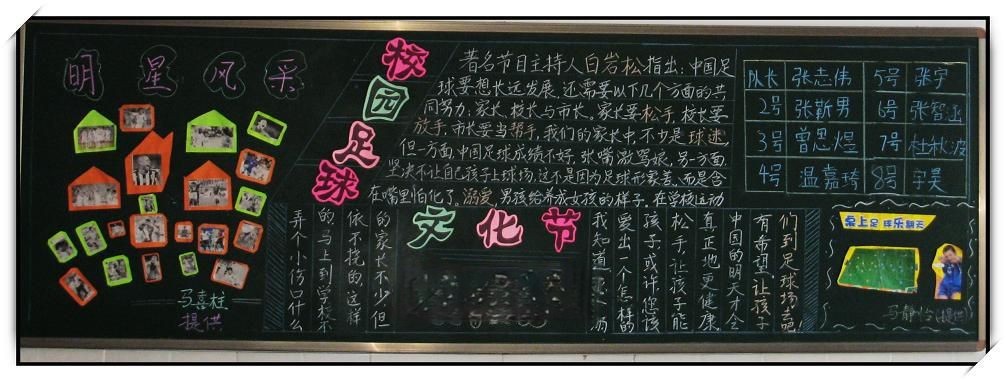 明星风采
校园足球
文化节
著名节目主持人白岩松指出:中国足
球要想长远发展,还需要以下几个方面的共
同努力:家长、校长与市长。家长要松手,校长要
放手,市长要当帮手。我们的家长中,不少是球迷,
但一方面,中国足球成绩不好,张嘴激骂娘,另一方面,
坚决不让自己孩子上球场,这不是因为足球形象差,而是含
在嘴里怕化了。溺爱,男孩给养成女孩的样子。在学校运动
弄个小伤口什么
的马上到学校不
依不挠的这样
的家长不少但
我知道
爱出一个怎样的
孩子或许您该
松手让孩子能
真正地更健康
中国的明天才会
有希望让孩子
们到足球场去吧!
队长 张志伟 5号 张宇
2号 张新男 6号 张智函
3号 曾思煜 7号 杜秋波
4号 温嘉琦 8号 宇昊
桌上足球乐翻天
马喜桂
提供
马静怡(提供)